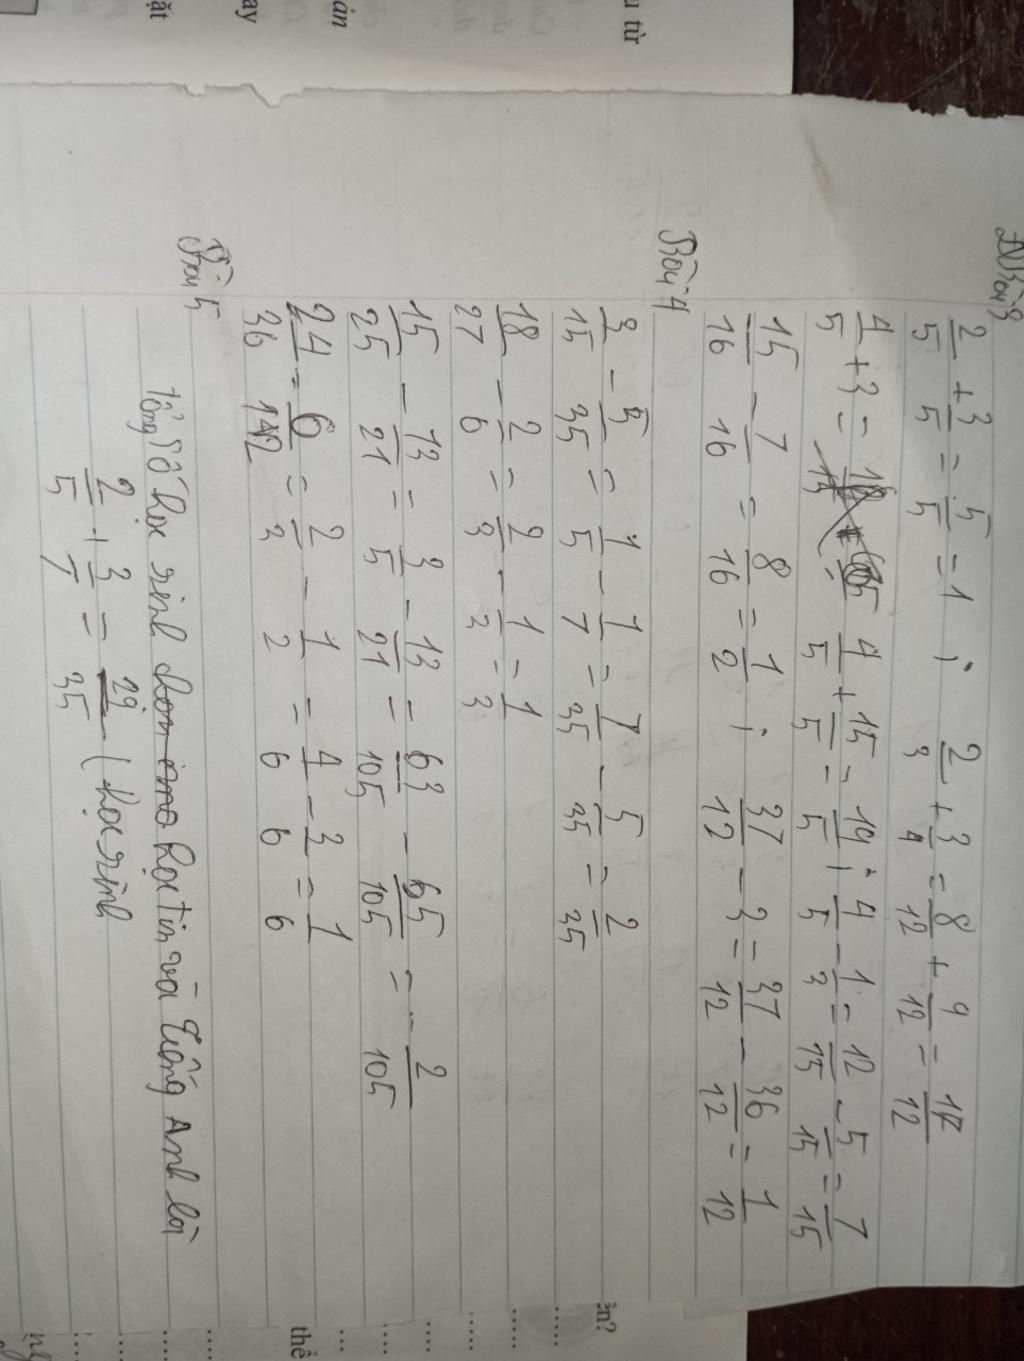 Bài 3
2/5 + 3/5 = 5/5 = 1 ; 2/3 + 3/4 = 8/12 + 9/12 = 17/12
4/5 + 3 = 4/5 + 15/5 = 19/5 ; 4/5 - 1/3 = 12/15 - 5/15 = 7/15
15/16 - 7/16 = 8/16 = 1/2 ; 37/12 - 3 = 37/12 - 36/12 = 1/12
Bài 4
3/15 - 5/35 = 1/5 - 1/7 = 7/35 - 5/35 = 2/35
18/27 - 2/6 = 2/3 - 1/3 = 1/3
15/25 - 13/21 = 3/5 - 13/21 = 63/105 - 65/105 = - 2/105
24/36 - 6/12 = 2/3 - 1/2 = 4/6 - 3/6 = 1/6
Bài 5
Tổng số học sinh học tin và Tiếng Anh là
2/5 + 3/7 = 29/35 (học sinh
u từ
án
ay
ặt
ăn?
thể